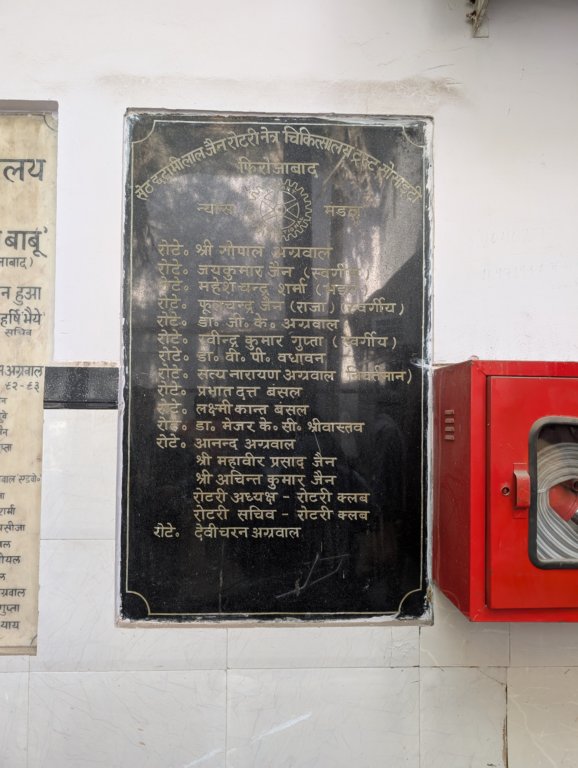 लय
बाबू'
बाद)
न हुआ
हर्षि भैये'
सचिव
म अग्रवाल
९२-९३
गुप्ता
सेठ छदामीलाल जैन रोटरी नेत्र चिकित्सालय ट्रस्ट सोसाइटी
फिरोजाबाद
न्यास मंडल
रोटे॰ श्री गोपाल अग्रवाल
रोटे॰ जयकुमार जैन (स्वर्गीय)
रोटे॰ महेश चन्द्र शर्मा
रोटे॰ फूलचन्द्र जैन (राजा) (स्वर्गीय)
रोटे॰ डा॰ जी॰ के॰ अग्रवाल
रोटे॰ रवीन्द्र कुमार गुप्ता (स्वर्गीय)
रोटे॰ डॉ॰ वी॰ पी॰ वधावन
रोटे॰ सत्य नारायण अग्रवाल (निवर्तमान)
रोटे॰ प्रभात दत्त बंसल
रोटे॰ लक्ष्मी कान्त बंसल
रोटे॰ डा॰ मेजर के॰ सी॰ श्रीवास्तव
रोटे॰ आनन्द अग्रवाल
श्री महावीर प्रसाद जैन
श्री अचिन्त कुमार जैन
रोटरी अध्यक्ष - रोटरी क्लब
रोटरी सचिव - रोटरी क्लब
रोटे॰ देवीचरन अग्रवाल